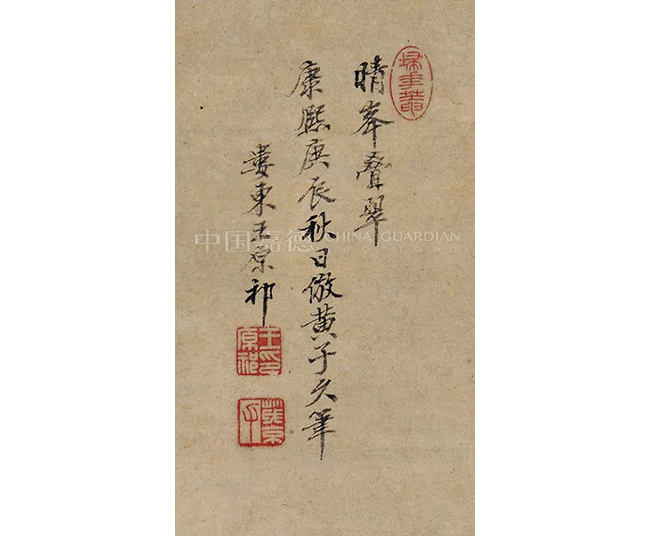 晴峯叠翠
康熙庚辰秋日倣黄子久筆
婁東王原祁
掃華菴
王原祁印
麓臺
中国嘉德 CHINA GUARDIAN